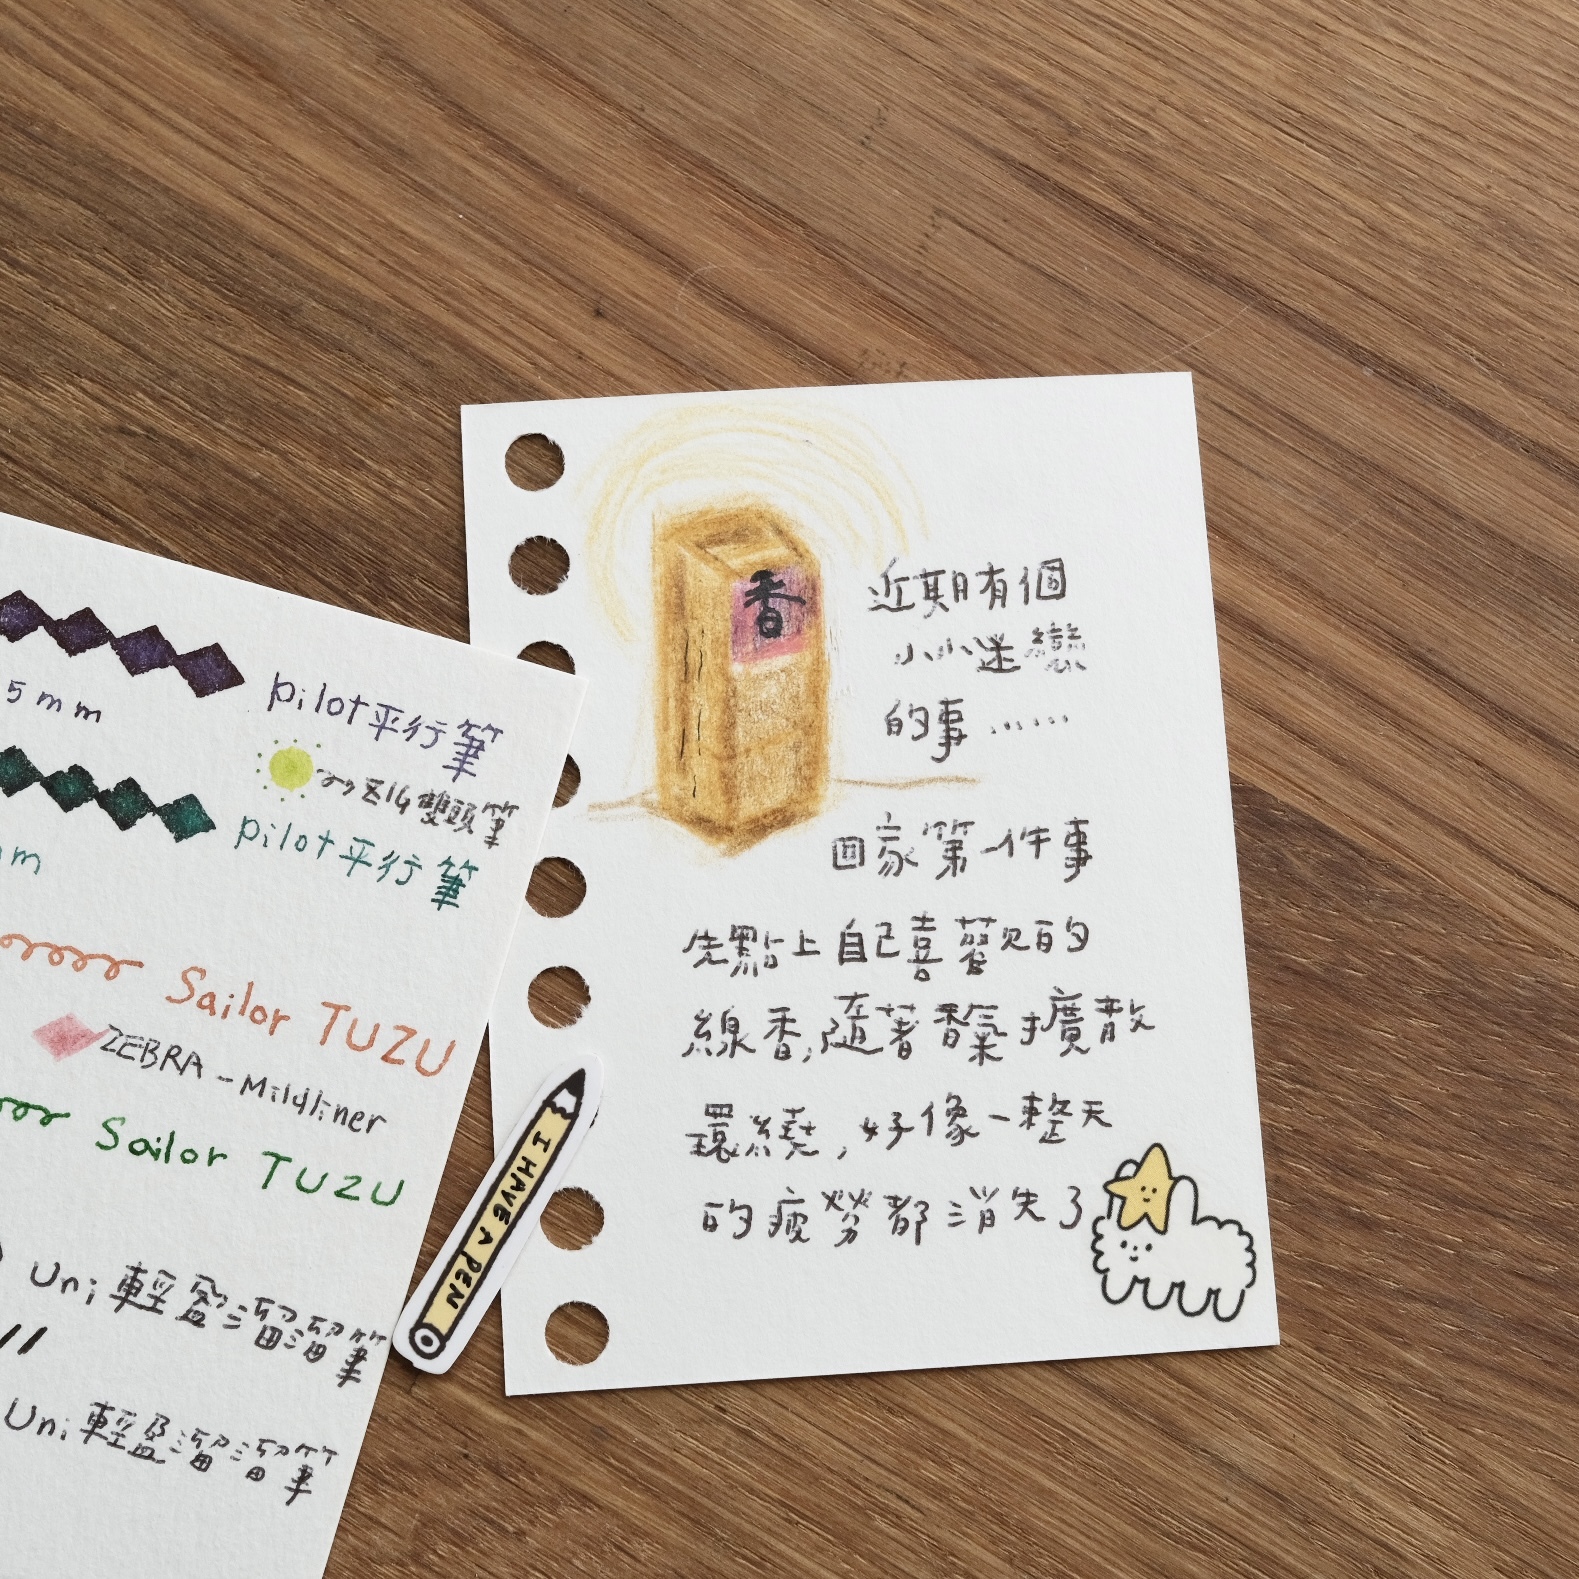 5mm
pilot平行筆
ZIG雙頭筆
mm
pilot平行筆
Sailor TUZU
ZEBRA-Mildliner
Sailor TUZU
Uni輕盈溜溜筆
Uni輕盈溜溜筆
I HAVE A PEN
香
近期有個
小小迷戀
的事……
回家第一件事
先點上自己喜歡的
線香,隨著香氣擴散
環繞,好像一整天
的疲勞都消失了